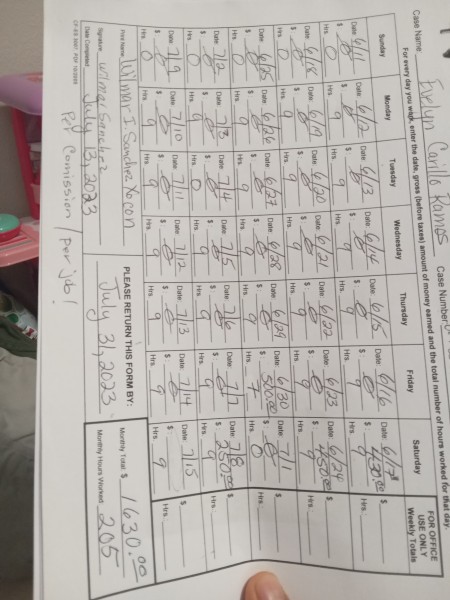 Case Name: Evelyn Carillo Ramos Case Number:
For every day you work, enter the date, gross (before taxes) amount of money earned and the total number of hours worked for that day.
Sunday Monday Tuesday Wednesday Thursday Friday Saturday FOR OFFICE USE ONLY Weekly Totals
Date: 6/11 Date: 6/12 Date: 6/13 Date: 6/14 Date: 6/15 Date: 6/16 Date: 6/17
$ 0 $ 0 $ 0 $ 0 $ 0 $ 0 $ 430.00 $
Hrs. 0 Hrs. 9 Hrs. 9 Hrs. 9 Hrs. 9 Hrs. 9 Hrs. 9 Hrs.
Date: 6/18 Date: 6/19 Date: 6/20 Date: 6/21 Date: 6/22 Date: 6/23 Date: 6/24
$ 0 $ 0 $ 0 $ 0 $ 0 $ 0 $ 450.00 $
Hrs. 0 Hrs. 9 Hrs. 9 Hrs. 9 Hrs. 9 Hrs. 9 Hrs. 9 Hrs.
Date: 6/25 Date: 6/26 Date: 6/27 Date: 6/28 Date: 6/29 Date: 6/30 Date: 7/1
$ 0 $ 0 $ 0 $ 0 $ 0 $ 500.00 $ 0 $
Hrs. 0 Hrs. 9 Hrs. 9 Hrs. 9 Hrs. 9 Hrs. 7 Hrs. 0 Hrs.
Date: 7/2 Date: 7/3 Date: 7/4 Date: 7/5 Date: 7/6 Date: 7/7 Date: 7/8
$ 0 $ 0 $ 0 $ 0 $ 0 $ 0 $ 250.00 $
Hrs. 0 Hrs. 9 Hrs. 0 Hrs. 9 Hrs. 9 Hrs. 9 Hrs. 9 Hrs.
Date: 7/9 Date: 7/10 Date: 7/11 Date: 7/12 Date: 7/13 Date: 7/14 Date: 7/15
$ 0 $ 0 $ 0 $ 0 $ 0 $ 0 $ $
Hrs. 0 Hrs. 9 Hrs. 9 Hrs. 9 Hrs. 9 Hrs. 9 Hrs. 9 Hrs.
Print Name: Wilmar I. Sanchez Xocon PLEASE RETURN THIS FORM BY: Monthly Total: $ 1630.00
Signature: Wilmar Sanchez July 31, 2023 Monthly Hours Worked 205
Date Completed July 13, 2023
Per Comission / per job!